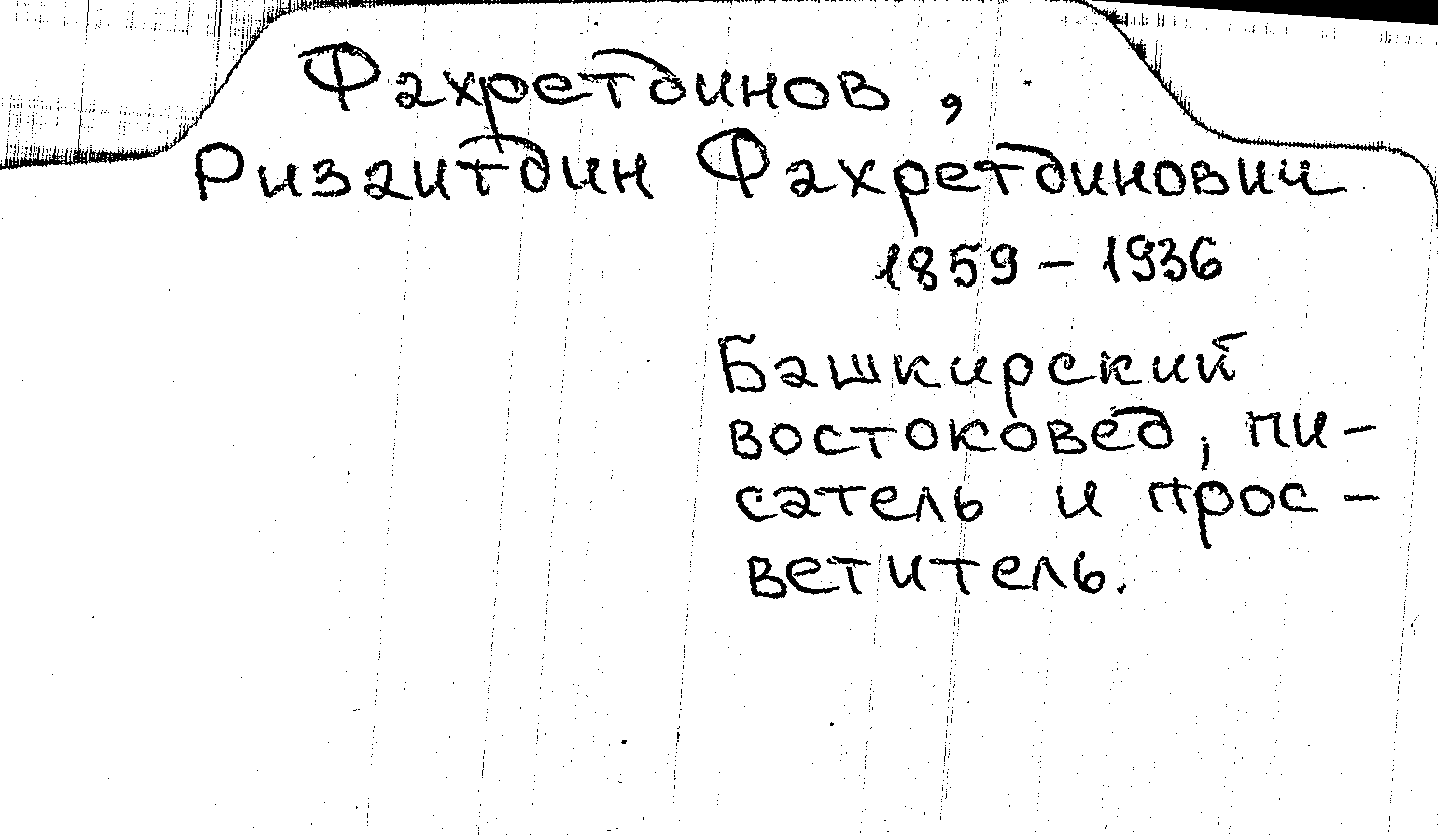 Фахретдинов,
Ризаитдин Фахретдинович
1859 - 1936
Башкирский
востоковед, пи-
сатель и прос-
ветитель.